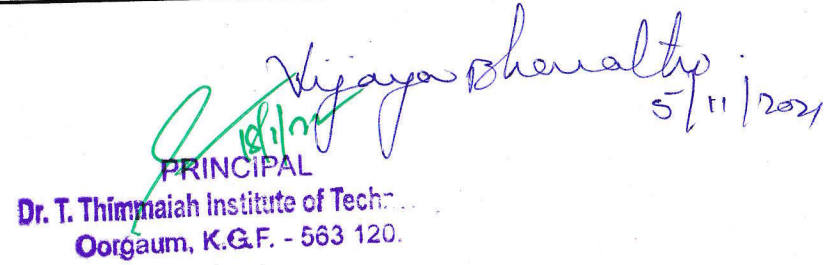 Vijaya Bharathi.
5/11/2021
18/1/22
PRINCIPAL
Dr. T. Thimmaiah Institute of Tech
Oorgaum, K.G.F. - 563 120.